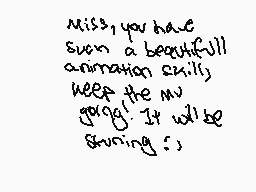 Miss, you have
suvn a beautifull
animation skill,
keep the mv
going! It will be
stuning :,